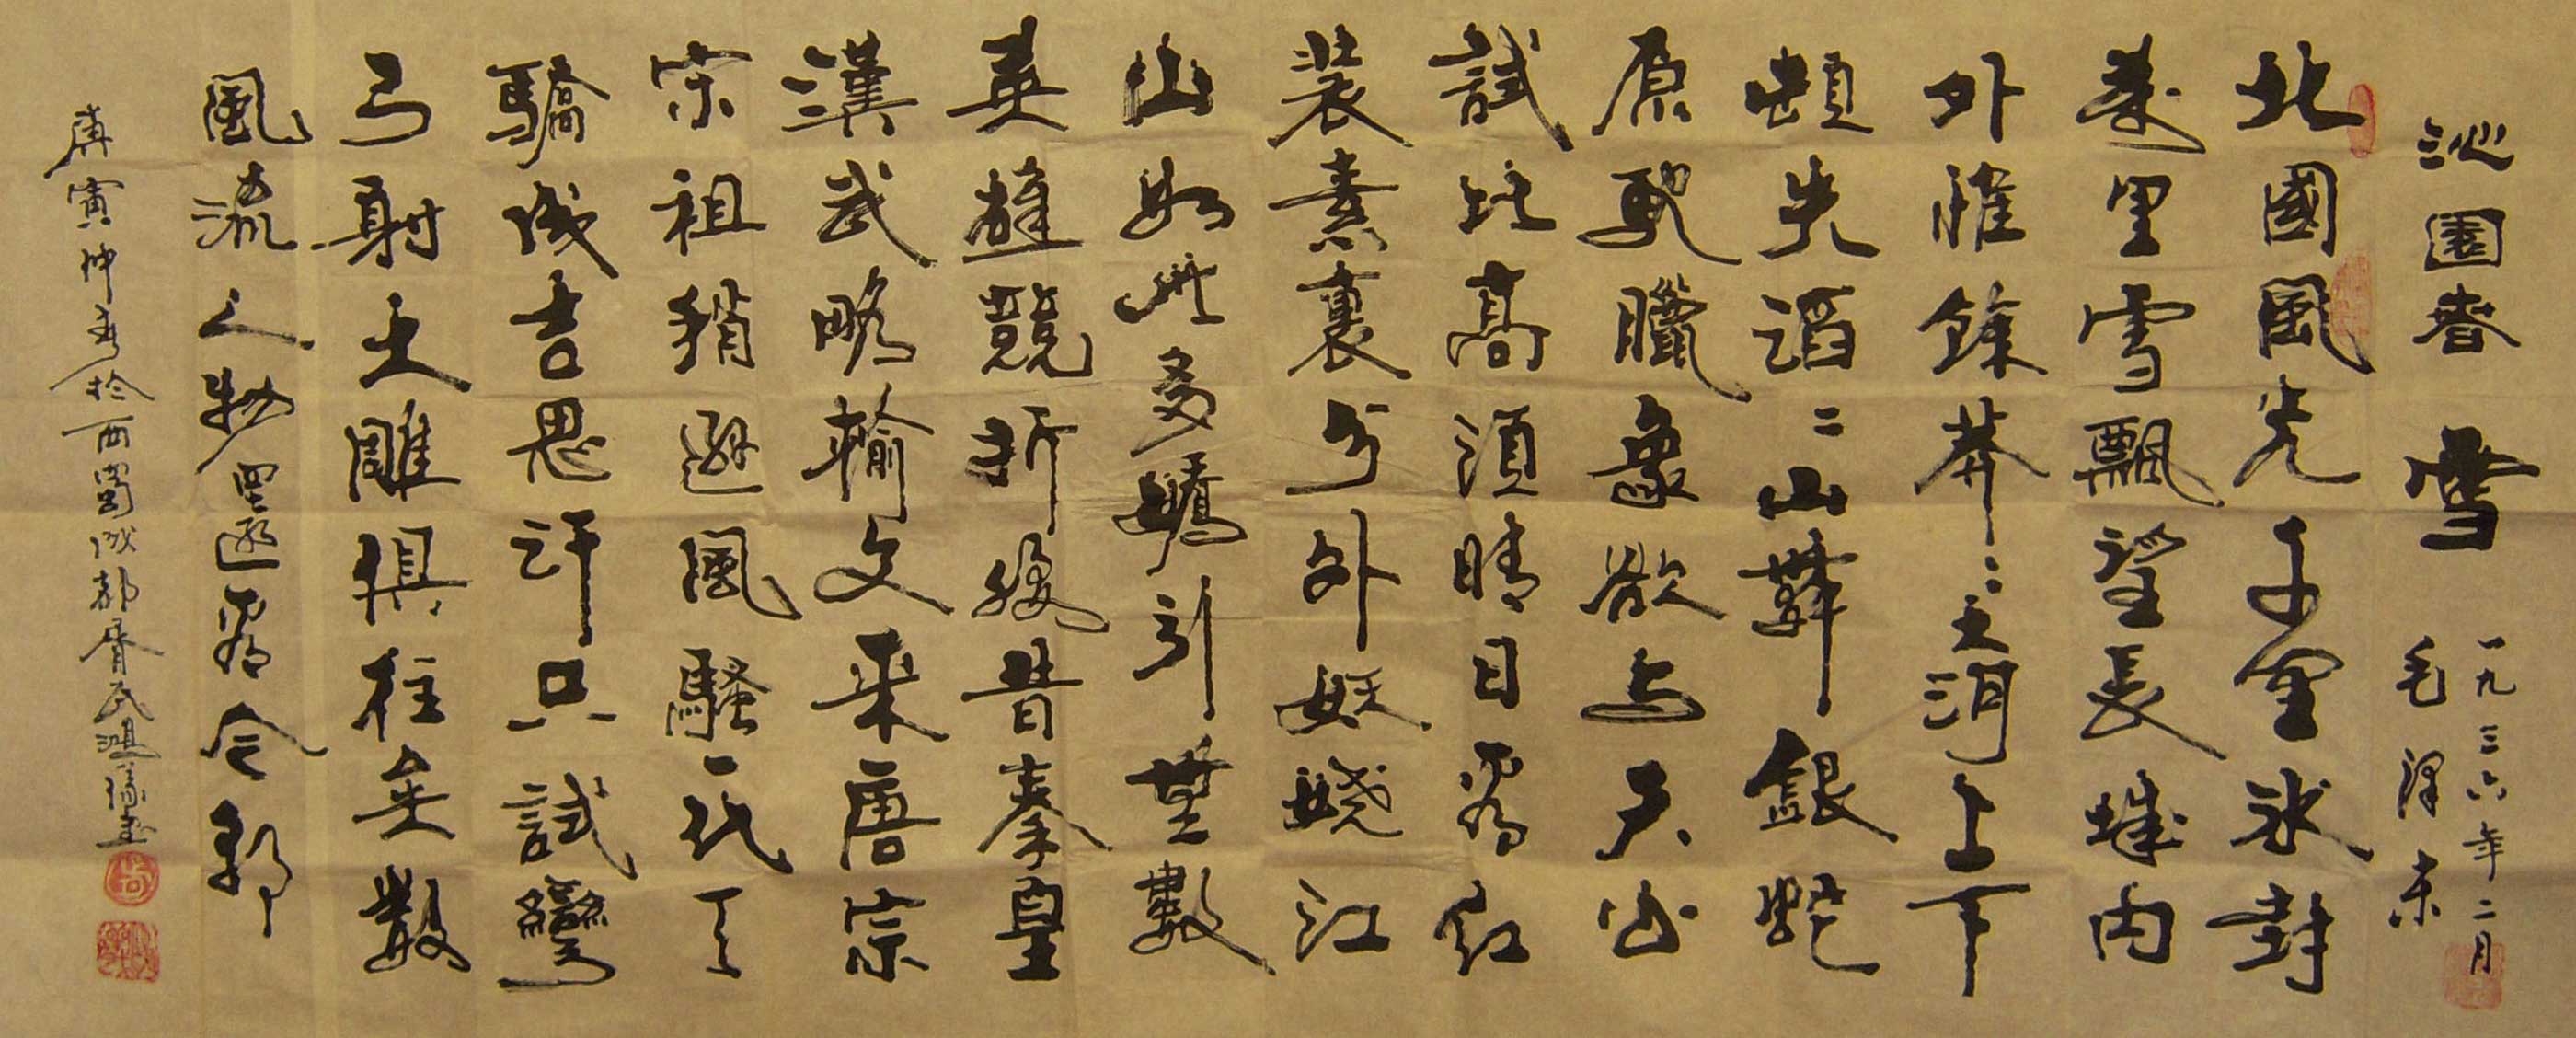 沁園春 雪
一九三六年二月
毛澤東
北國風光千里冰封
萬里雪飄望長城内
外惟餘莽〻大河上下
頓失滔〻山舞銀蛇
原馳臘象欲与天公
試比高須晴日看紅
裝素裹分外妖嬈江
山如此多嬌引無數
英雄競折腰昔秦皇
漢武略輸文采唐宗
宋祖稍遜風騷一代天
驕成吉思汗只試彎
弓射大雕俱往矣數
風流人物還看今朝
庚寅仲春於西蜀成都胥氏鴻